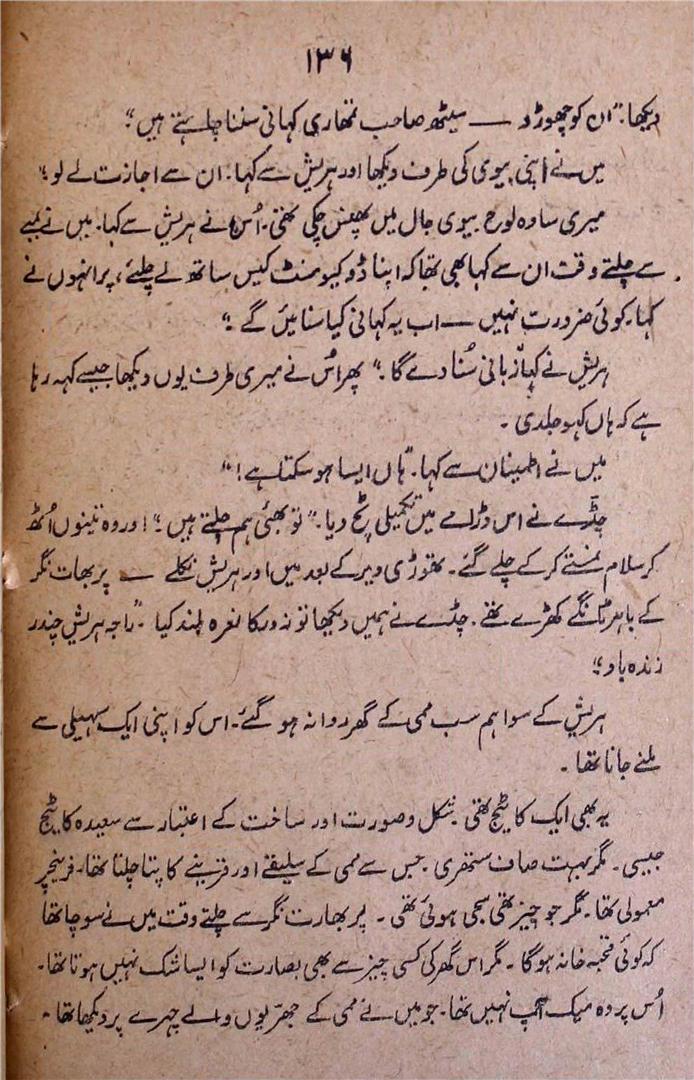 ۱۳۶
دیکھا۔ "ان کو چھوڑو — سیٹھ صاحب تمہاری کہانی سننا چاہتے ہیں۔"
میں نے اپنی بیوی کی طرف دیکھا اور ہریش سے کہا۔ ان سے اجازت لے لو۔"
میری سادہ لوح بیوی جال میں پھنس چکی تھی۔ اُس نے ہریش سے کہا۔ میں نے بمبے
سے چلتے وقت ان سے کہا بھی تھا کہ اپنا ڈوکیومنٹ کیس ساتھ لے چلئے، پر انہوں نے
کہا۔ کوئی ضرورت نہیں — اب یہ کہانی کیا سنائیں گے۔"
ہریش نے کہا۔ زبانی سُنا دے گا۔" پھر اُس نے میری طرف یوں دیکھا جیسے کہہ رہا
ہے کہ ہاں کہو جلدی۔
میں نے اطمینان سے کہا۔ "ہاں ایسا ہو سکتا ہے!"
چڈے نے اس ڈرامے میں تکمیلی ٹچ دیا۔ "تو بھئی ہم چلتے ہیں۔" اور وہ تینوں اُٹھ
کر سلام نمستے کر کے چلے گئے۔ تھوڑی دیر کے بعد میں اور ہریش نکلے — پربھات نگر
کے باہر ٹانگے کھڑے تھے۔ چڈے نے ہمیں دیکھا تو زور کا نعرہ بلند کیا۔ "راجہ ہریش چندر
زندہ باد۔"
ہریش کے سوا ہم سب ممی کے گھر روانہ ہو گئے۔ اس کو اپنی ایک سہیلی سے
ملنے جانا تھا۔
یہ بھی ایک کاٹیج تھی۔ شکل و صورت اور ساخت کے اعتبار سے سعیدہ کاٹیج
جیسی۔ مگر بہت صاف ستھری۔ جس سے ممی کے سلیقے اور قرینے کا پتا چلتا تھا۔ فرنیچر
معمولی تھا۔ مگر جو چیز تھی سجی ہوئی تھی۔ پربھات نگر سے چلتے وقت میں نے سوچا تھا
کہ کوئی قحبہ خانہ ہوگا۔ مگر اس گھر کی کسی چیز سے بھی بصارت کو ایسا شک نہیں ہوتا تھا۔
اُس پر وہ میک اَپ نہیں تھا۔ جو میں نے ممی کے جھرّیوں والے چہرے پر دیکھا تھا۔